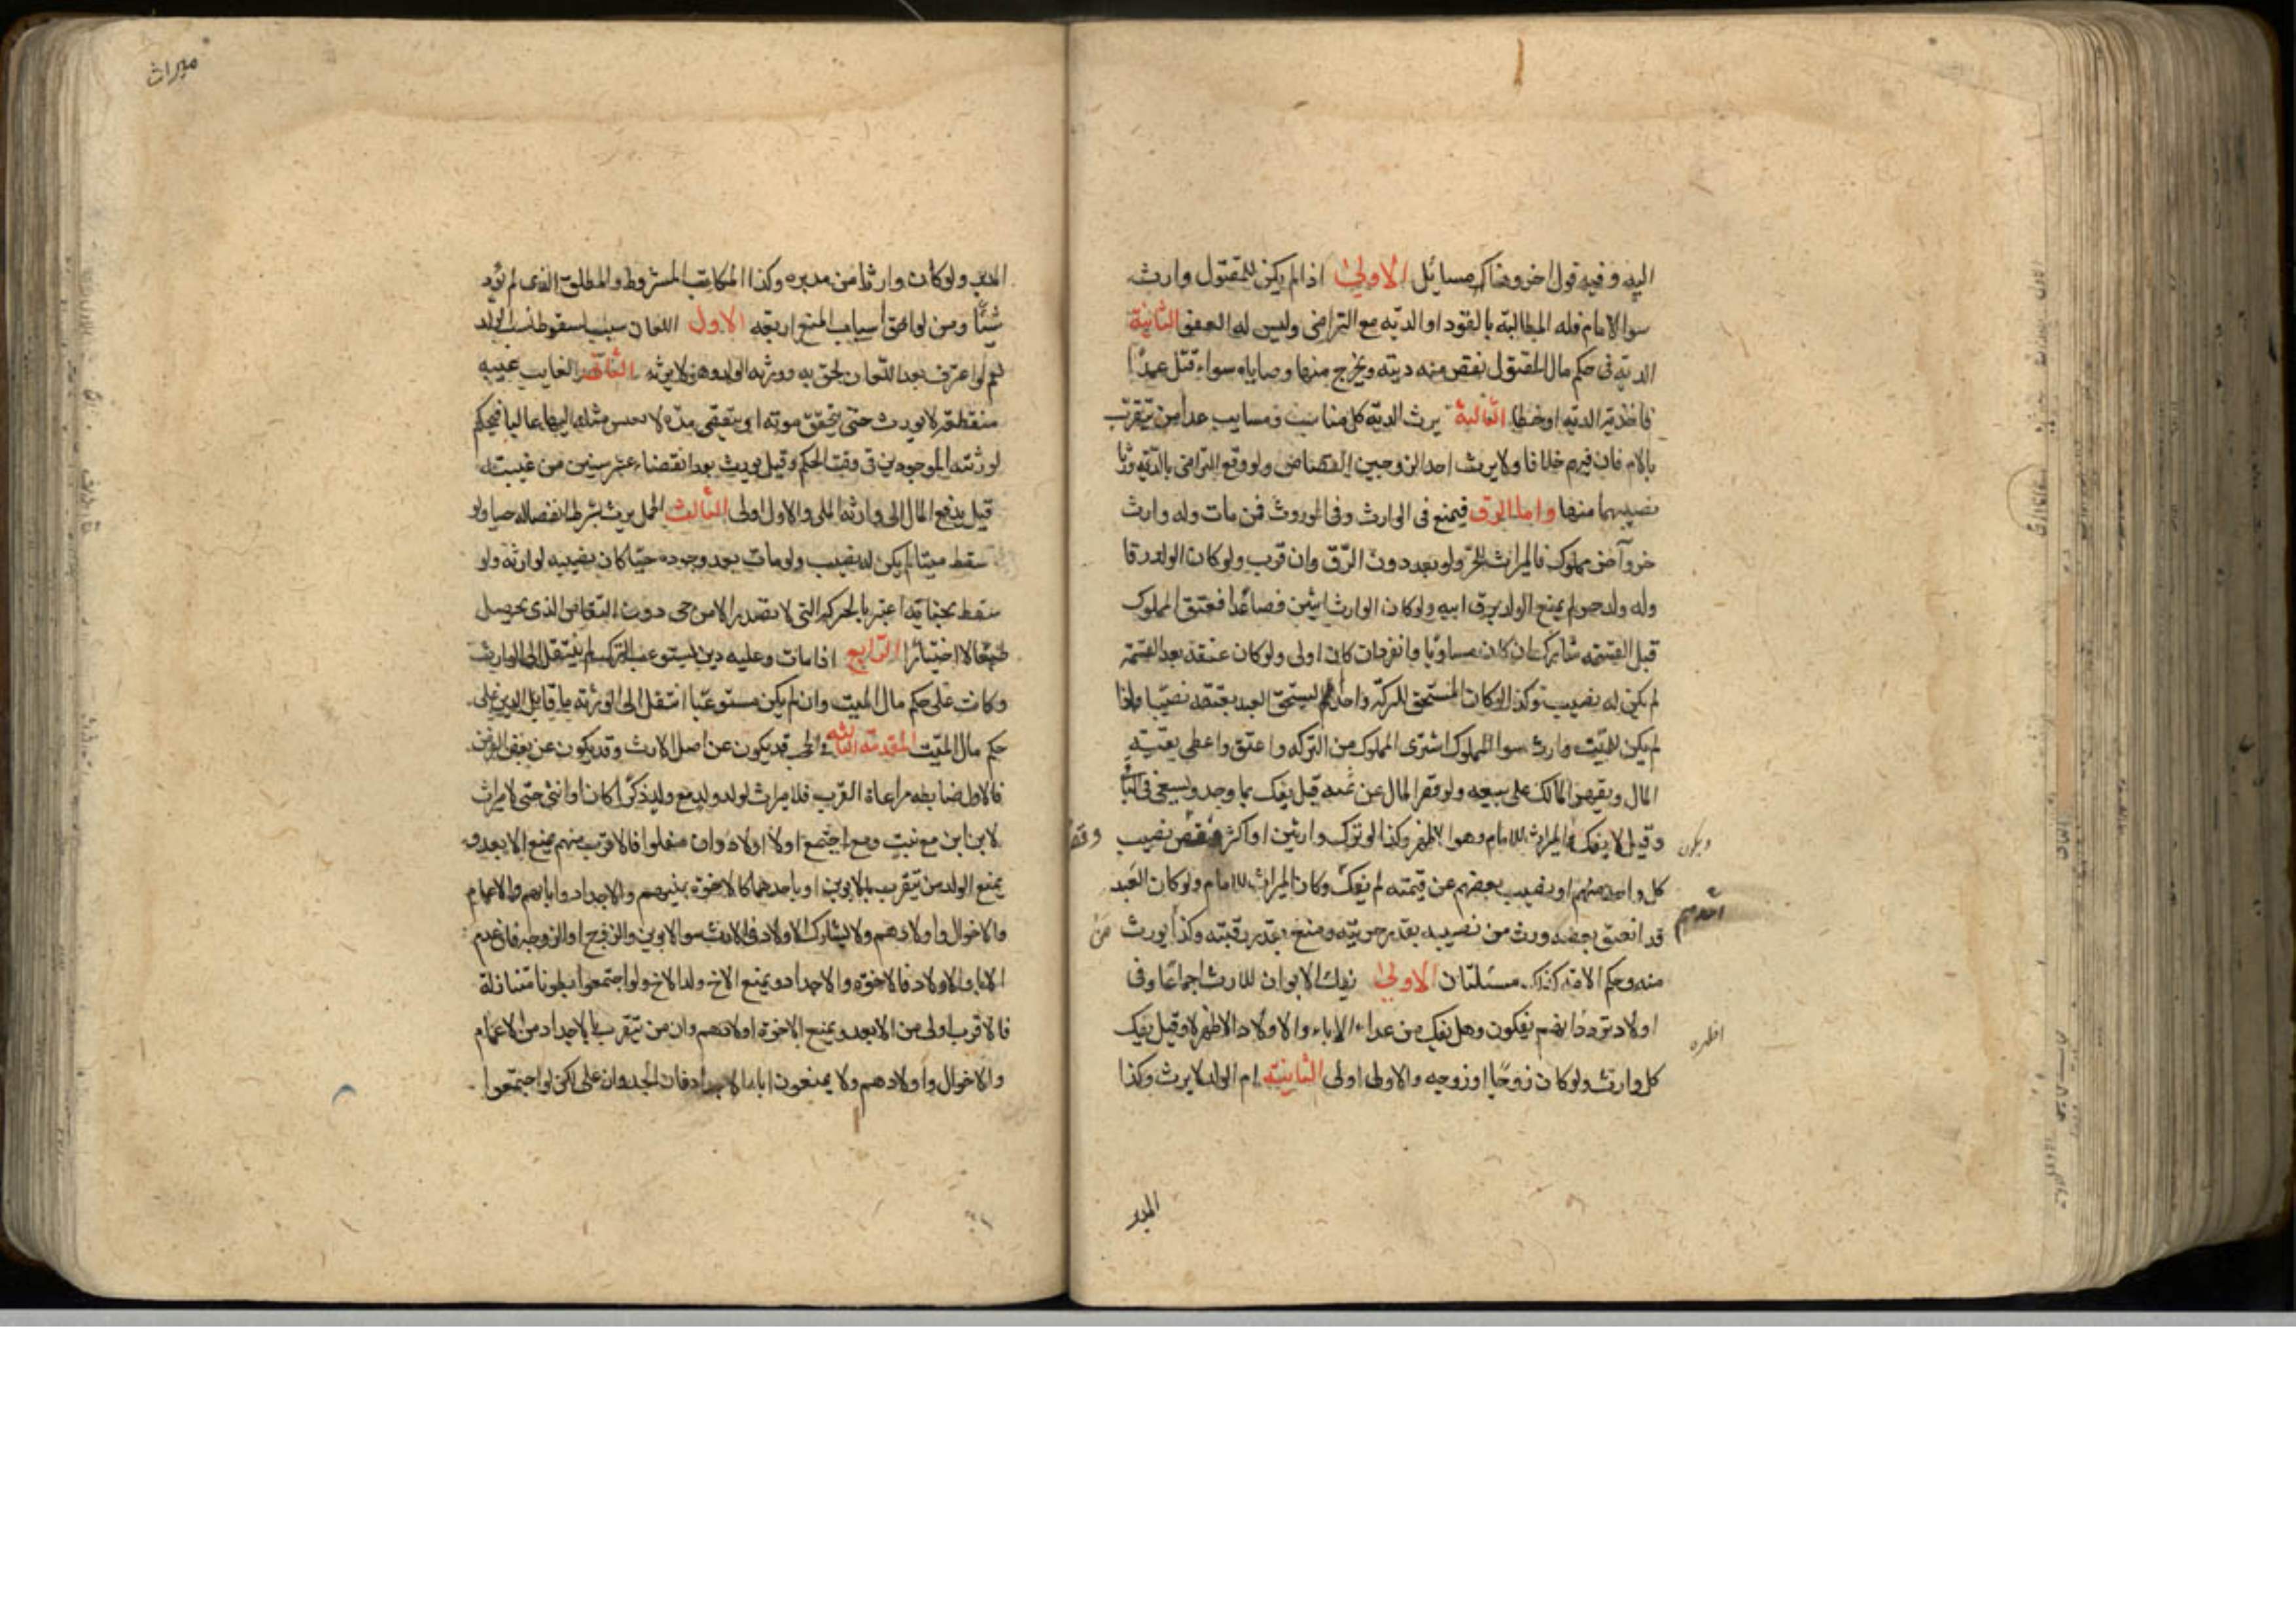 اليه وفيه قول اخر وهناك مسائل الاولىٰ اذا لم يكن للمقتول وارث
سوا الامام فله المطالبة بالقود او الدية مع التراضى وليس له العفو الثانية
الدية فى حكم مال المقتول يقضى منه دينه ويخرج منها وصاياه سواء قتل عمدًا
فاخذت الدية او خطا الثالثة يرث الدية كل مناسب ومسابب عدا من يتقرب
بالام فان فيهم خلافا ولا يرث احد الزوجين القصاص ولو وقع التراضى بالدية ورثا
نصيبهما منها واما الرق فيمنع فى الوارث وفى الموروث فمن مات وله وارث
حر وآخر مملوك فالميراث للحرّ ولو بعد دون الرّق وان قرب ولو كان الولد رقا
وله ولد حر لم يمنع الولد برق ابيه ولو كان الوارث اثنين فصاعدًا فعتق المملوك
قبل القسمة شارك ان كان مساويًا وانفرد ان كان اولى ولو كان عتقه بعد القسمة
لم يكن له نصيب وكذا لو كان المستحق للتركة واحدًا لم يستحق العبد بعتقه نصيبا واذا
لم يكن للميّت وارث سوا المملوك اشترى المملوك من التركه واعتق واعطى بقيّة
المال ويقهر المالك على بيعه ولو قصر المال عن ثمنه قيل يفك بما وجد ويسعى فى الباقى
وقيل لا يفك والميراث للامام وهو الاظهر وكذا لو ترك وارثين او اكثر فنقص نصيب
ويكون
كل واحد منهم او نصيب بعضهم عن قيمته لم يفك وكان الميراث للامام ولو كان العبد
قد انعتق بعضه ورث من نصيبه بقدر حريّته ومنع بقدر رقيته وكذا يورث
منه وحكم الامة كذلك مسئلتان الاولىٰ يفك الابوان للارث اجماعًا وفى
اولاد تردد انهم يفكون وهل يفك من عدا الاباء والاولاد الاظهر لا وقيل يفك
اظهره
كل وارث ولو كان زوجًا او زوجه والاولى اولى الثانية ام الولد لا يرث وكذا
المدبر
ميراث
المدبر ولو كان وارثا من مدبره وكذا المكاتب المشروط والمطلق الذى لم يؤد
شيئًا ومن لواحق اسباب المنع اربعة الاول اللعان سبب لسقوط نسب الولد
نعم لو اعترف بعد اللعان لحق به وورثه الولد وهو لا يرثه الثانى الغايب غيبه
منقطعة لا يورث حتى يتحقق موته او ينقضى مدة لا يعيش مثله اليها غالبا فيحكم
لورثته الموجودين فى وقت الحكم وقيل يورث بعد انقضاء عشر سنين من غيبته
قيل يدفع المال الى وارثه الملى والاول اولى الثالث الحمل يرث بشرط انفصاله حيا ولو
سقط ميتا لم يكن له نصيب ولو مات بعد وجوده حيّا كان نصيبه لوارثه ولو
سقط بجنايه اعتبر بالحركه التى لا تصدر الا من حى دون التقلص الذى يحصل
طبعًا لا اختيارًا الرابع اذا مات وعليه دين يستوعب التركه لم ينتقل الى الوارث
وكانت على حكم مال الميت وان لم يكن مستوعبًا انتقل الى الورثه ما قابل الدين على
حكم مال الميّت المقدمة الثالثه فى الحجب قد يكون عن اصل الارث وقد يكون عن بعض الفرض
فالاول ضابطه مراعاة القرب فلا ميراث لولد ولد مع ولد ذكرًا كان او انثى حتى لا ميراث
لابن ابن مع بنت ومع اجتمع اولاد اولاد وان سفلوا فالاقرب منهم يمنع الابعد و
يمنع الولد من يتقرب بالابوين او باحدهما كالاخوة وبنيهم والاجداد واباهم والاعمام
والاخوال واولادهم ولا يشارك الاولاد فى الارث سوا الابوين والزوج او الزوجه فان عدم
الابا والاولاد فالاخوة والاجداد ويمنع الاخ ولد الاخ ولو اجتمعوا بطونا متنازلة
فالاقرب اولى من الابعد ويمنع الاخوة اولادهم وان من يتقرب بالاجداد من الاعمام
والاخوال واولادهم ولا يمنعون ابا الاجداد فان الجد وان على لكن لو اجتمعوا